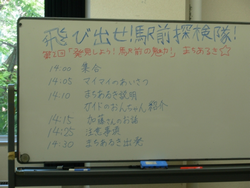 飛び出せ!駅前探検隊!
第1回「発見しよう!駅前の魅力」まちあるき☆
14:00 集合
14:05 マイマイのあいさつ
14:10 まちあるき説明
ガイドのおんちゃん紹介
14:15 加藤さんのお話
14:25 注意事項
14:30 まちあるき出発